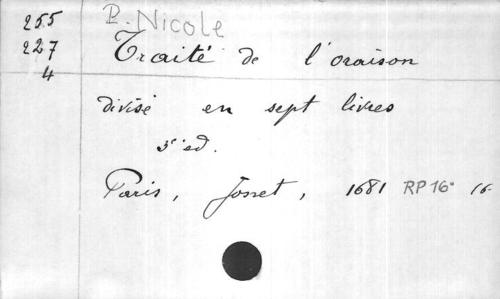 255
227
4
P. Nicole
Traité de l'oraison
divisé en sept livres
3e ed.
Paris, Josset, 1681 RP 16° 16